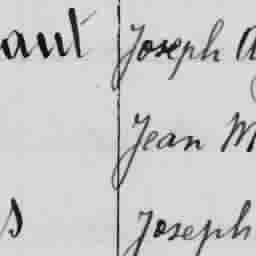 aut Joseph A
Jean M
s Joseph